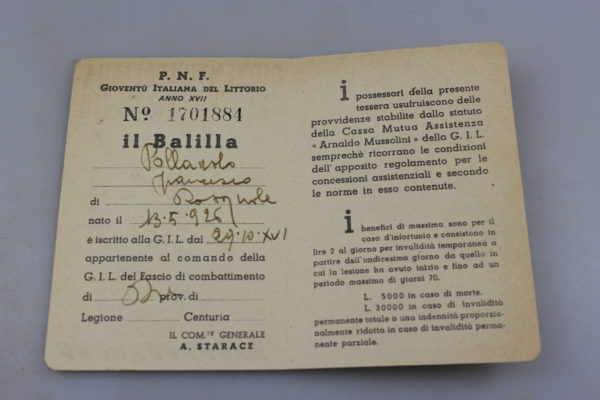 P. N. F.
GIOVENTÙ ITALIANA DEL LITTORIO
ANNO XVII
Nº 1701884
il Balilla
Francesco
di
nato il 13.5.926
è iscritto alla G.I.L. dal 29.10.XVI
appartenente al comando della
G.I.L. del Fascio di combattimento
di prov. di
Legione Centuria
IL COM.TE GENERALE
A. STARACE
i possessori della presente
tessera usufruiscono delle
provvidenze stabilite dallo statuto
della Cassa Mutua Assistenza
« Arnaldo Mussolini » della G. I. L.
sempreché ricorrano le condizioni
dell'apposito regolamento per le
concessioni assistenziali e secondo
le norme in esso contenute.
i benefici di massima sono per il
caso d'infortunio e consistono in
lire 2 al giorno per invalidità temporanea a
partire dall'undicesimo giorno da quello in
cui la lesione ha avuto inizio e fino ad un
periodo massimo di giorni 70.
L. 5000 in caso di morte.
L. 30000 in caso di invalidità
permanente totale o una indennità proporzio-
nalmente ridotta in caso di invalidità perma-
nente parziale.